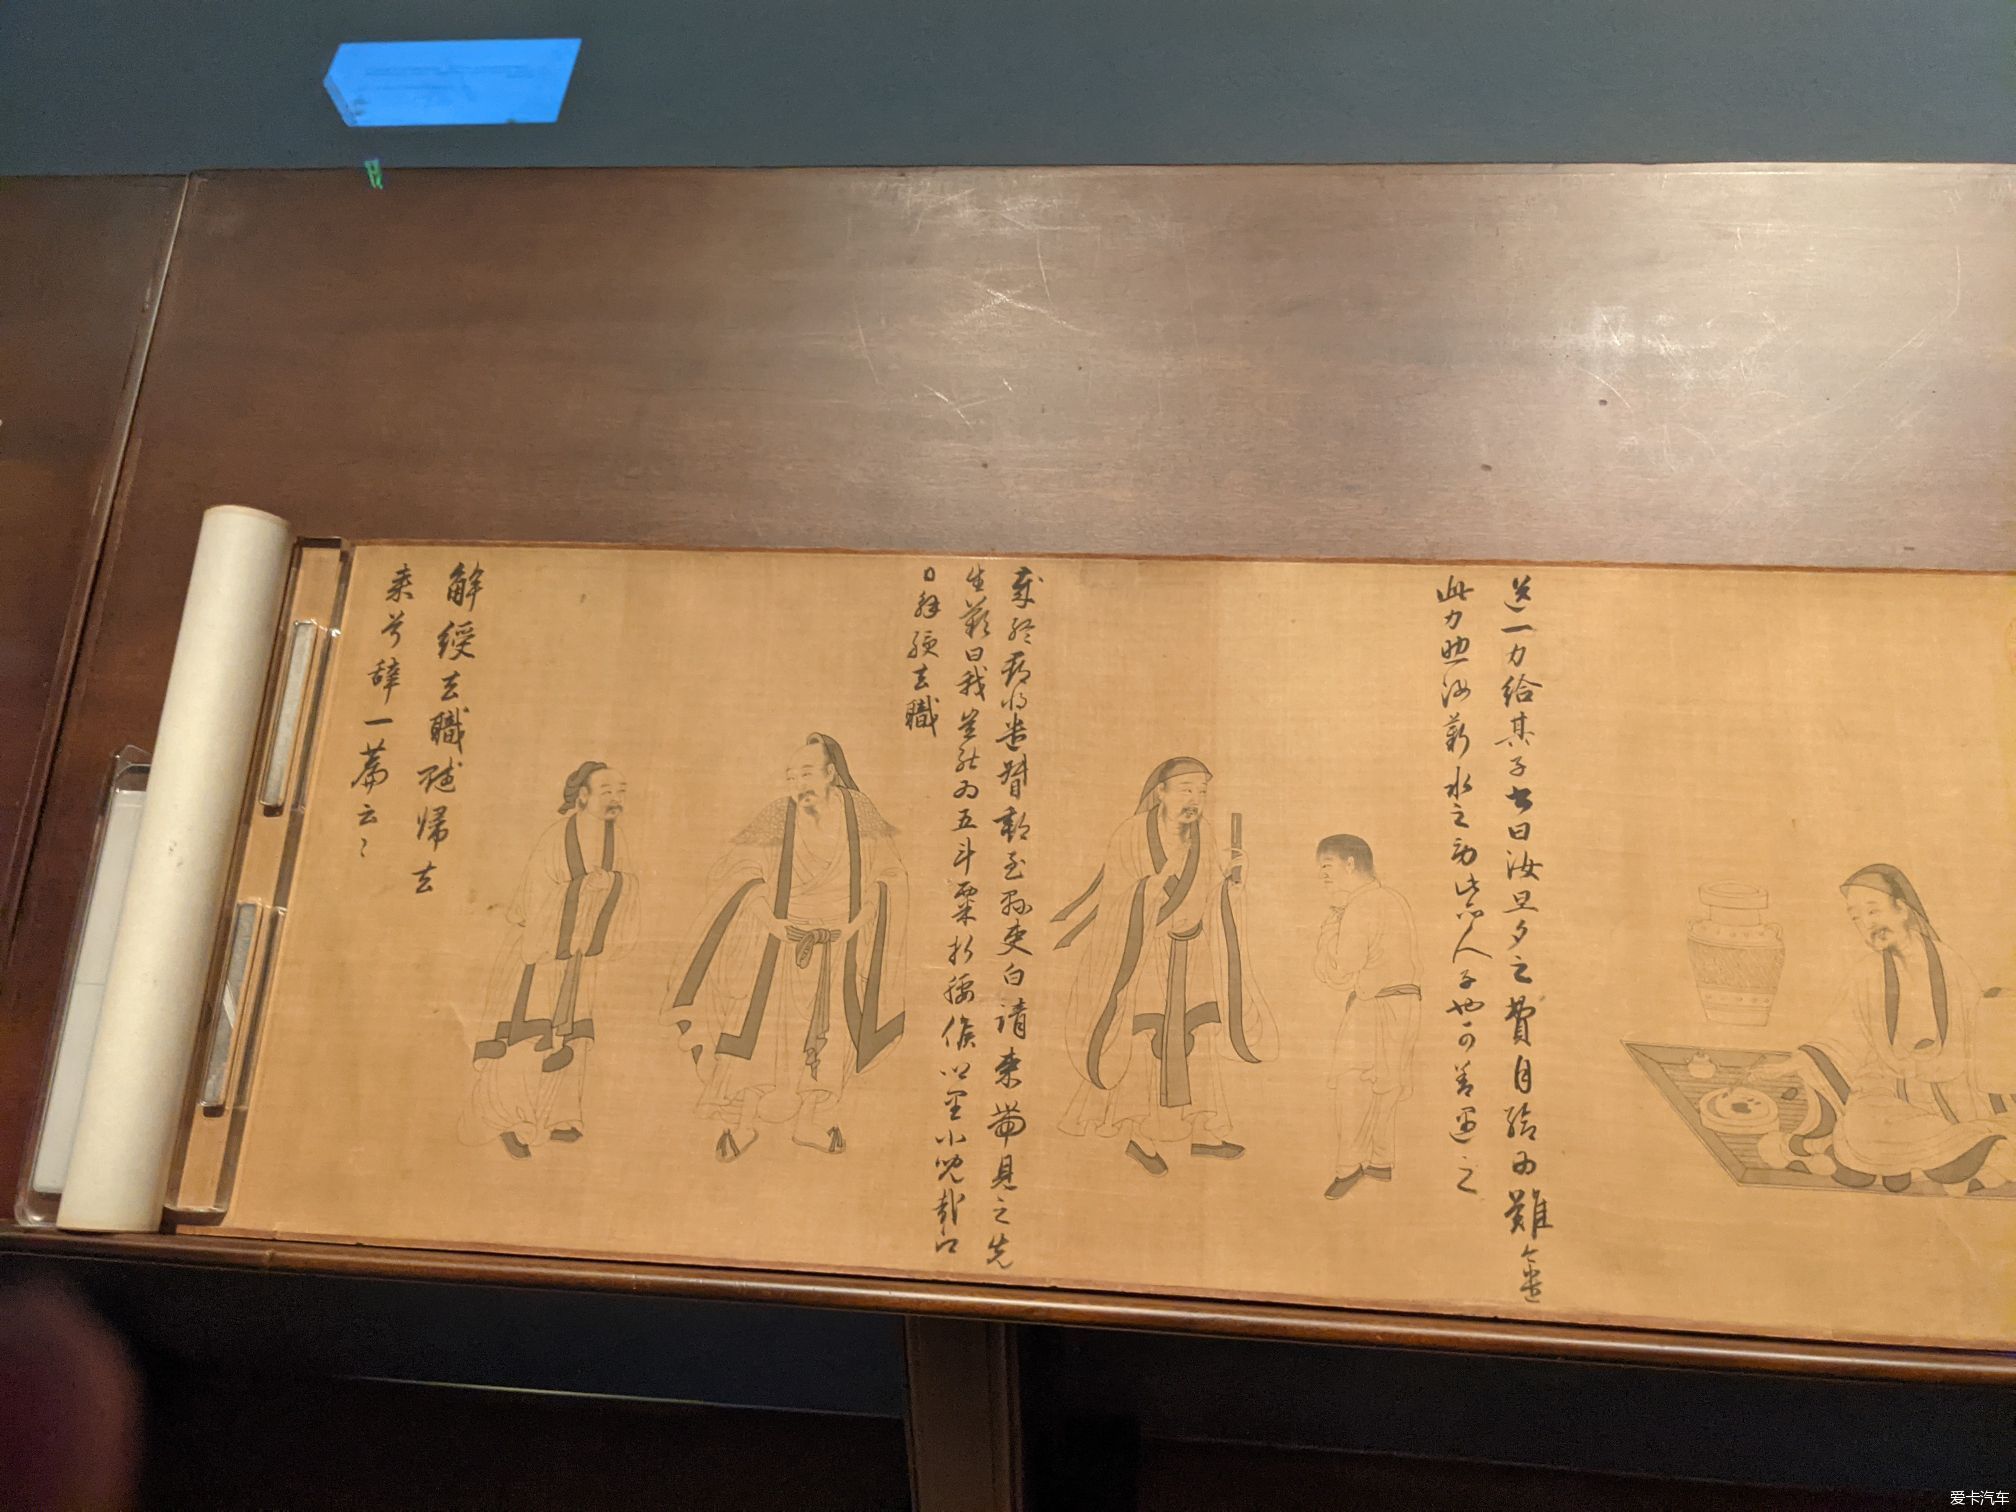 送一力給其子書曰汝旦夕之費自給為難今遣
此力助汝薪水之勞此亦人子也可善遇之
歲終郡將遣督郵至縣吏白請束帶見之先
生歎曰我豈能為五斗粟折腰鄉里小兒哉即
日解綬去職
解綬去職賦歸去
来兮辭一篇云〻
爱卡汽车